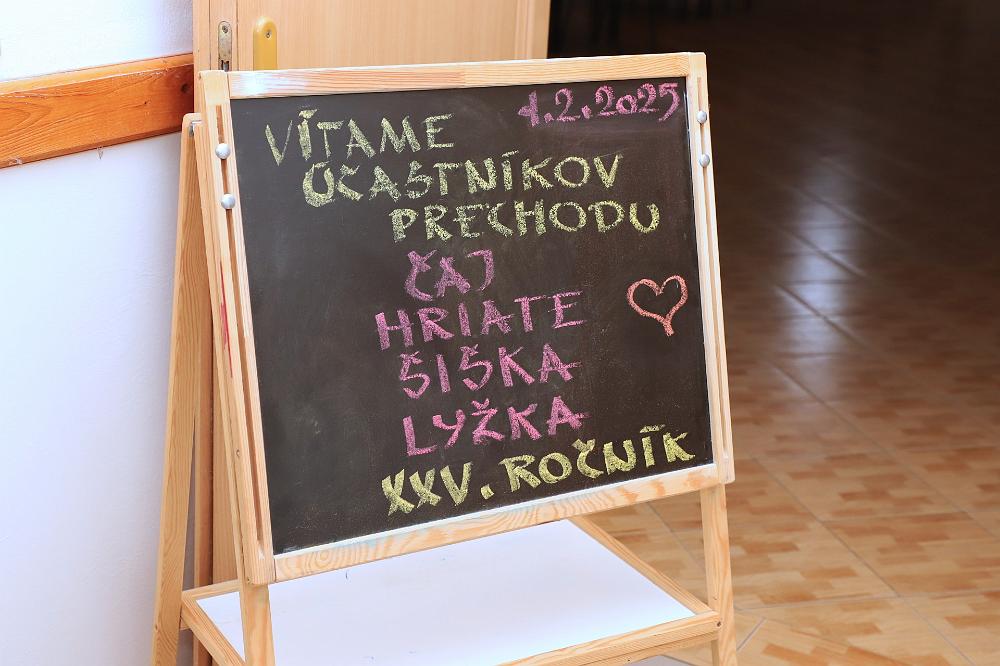 1.2.2025
VÍTAME
ÚČASTNÍKOV
PRECHODU
ČAJ
HRIATE
ŠIŠKA
LYŽKA
XXV. ROČNÍK